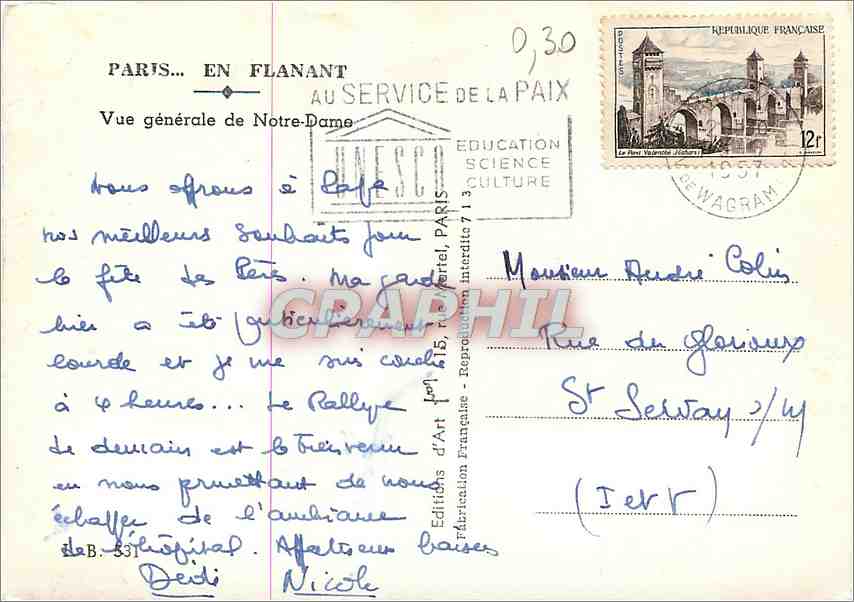 0,30
REPUBLIQUE FRANÇAISE
POSTES
Le Pont Valentré (Cahors)
12f
PARIS... EN FLANANT
AU SERVICE DE LA PAIX
Vue générale de Notre-Dame
UNESCO
EDUCATION
SCIENCE
CULTURE
1957
DE WAGRAM
Nous offrons à
nos meilleurs souhaits pour
la fête des Pères. Ma garde
hier a été particulièrement
lourde et je me suis couché
à 4 heures... Le Rallye
de demain est le bienvenu
en nous permettant de nous
échapper de l'ambiance
de l'hôpital. Affectueux baisers
Dédé Nicole
L. B. 531
Editions d'Art 15, rue Martel, PARIS
Fabrication Française - Reproduction interdite 713
CPAPHIL
Monsieur André Colin
Rue du Glorioux
St Servan s/M
(I et V)